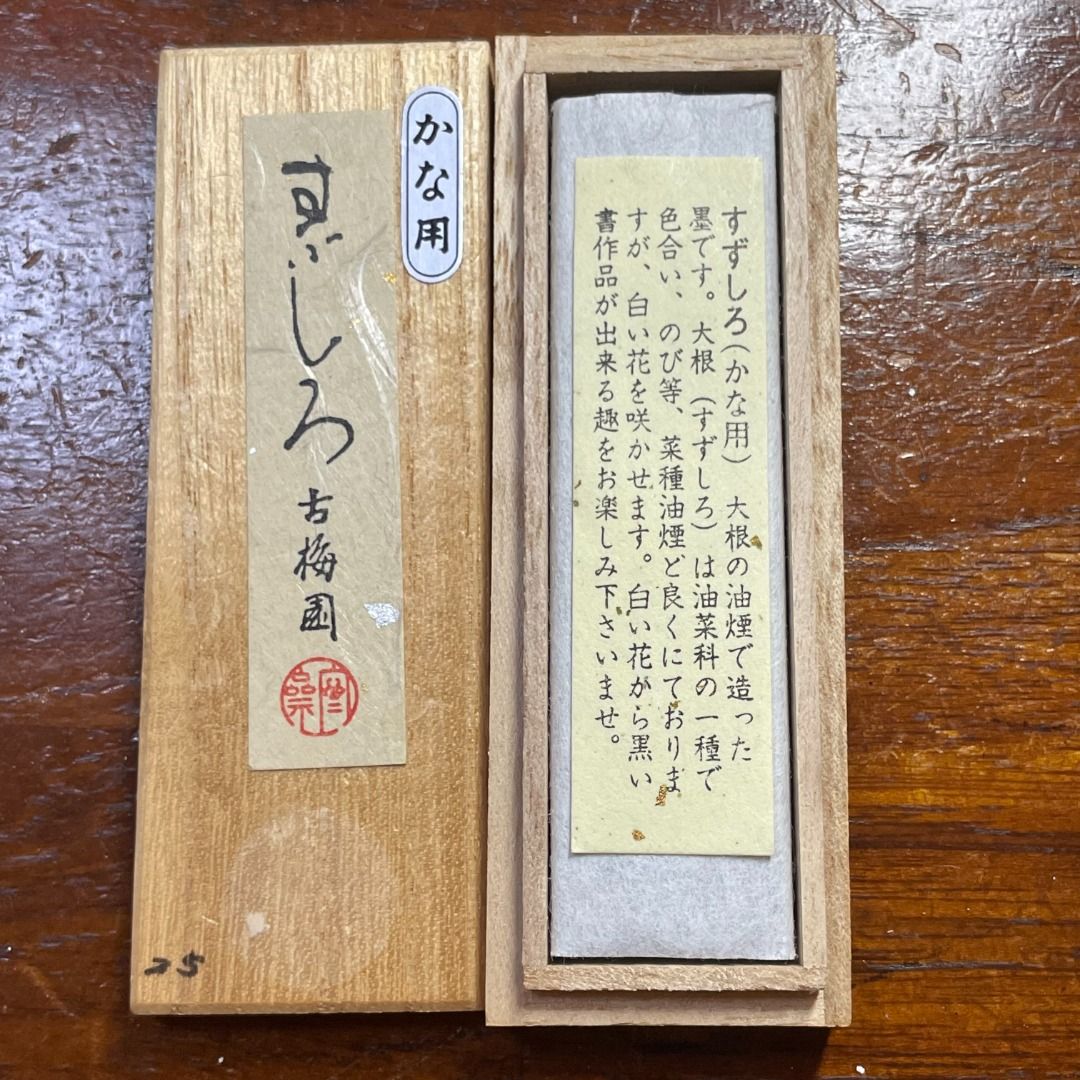 かな用
すゞしろ 古梅園
25
すずしろ(かな用) 大根の油煙で造った
墨です。大根(すずしろ)は油菜科の一種で
色合い、のび等、菜種油煙と良くにておりま
すが、白い花を咲かせます。白い花から黒い
書作品が出来る趣をお楽しみ下さいませ。